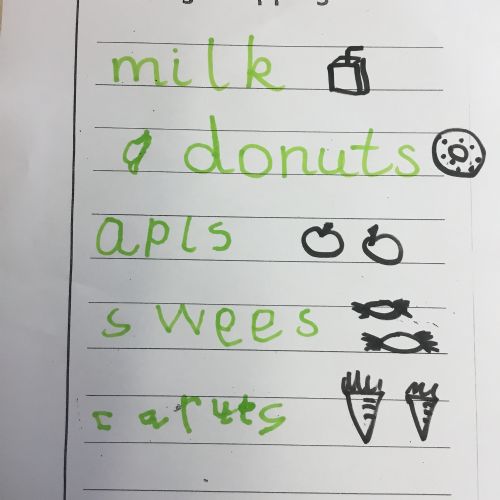 milk
donuts
apls
swees
caruts